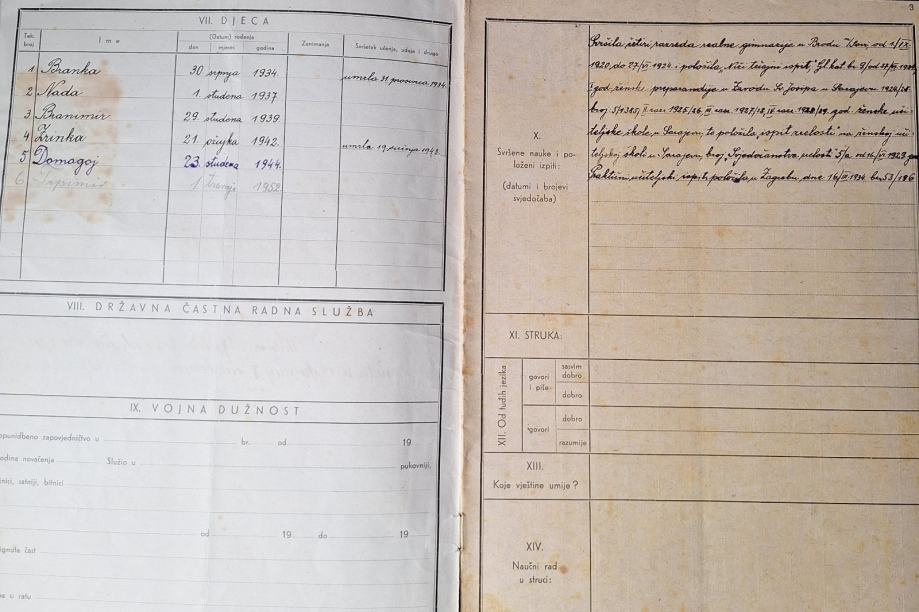 VII. DJECA
Tek. broj
Ime
(Datum) rođenja
dan mjesec godina
Zanimanje
Svršetak učenja, udaja i drugo
1 Branka 30 srpnja 1934. umrla 31 prosinca 1934.
2 Nada 1. studena 1937
3 Branimir 29. studena 1939.
4 Zrinka 21. ožujka 1942. umrla 19. 1942.
5 Domagoj 23. studena 1944.
6 1 travnja 1952
VIII. DRŽAVNA ČASTNA RADNA SLUŽBA
IX. VOJNA DUŽNOST
opunidbeno zapovjedničtvo u br. od 19
odina novačenja Služio u pukovniji,
tnici, satniji, bitnici
od 19 do 19
ignuta čast
a u ratu
3
X.
Svršene nauke i položeni izpiti:
(datumi i brojevi svjedočaba)
Svršila četiri razreda realne gimnazije u Brodu n/Savi od 1/IX.
1920. do 27/VI. 1924. i položila „Niži tečajni ispit“ br. 9/od
I god. ženske preparandije u Zavodu Sv. Josipa u Sarajevu 1924/25.
broj 5/1385, II raz. 1925/26. III raz. 1927/28, IV raz. 1928/29. god. ženske uči-
teljske škole u Sarajevu, te položila „ispit zrelosti“ na ženskoj uči-
teljskoj školi u Sarajevu, broj Svjedočanstva zrelosti 5/a od 16/VI. 1929. god.
Praktični učiteljski ispit položila u Zagrebu dne 16/ 1934 br. 53/186
XI. STRUKA:
XII. Od tuđih jezika
govori i piše
sasvim dobro
dobro
govori
dobro
razumije
XIII.
Koje vještine umije?
XIV.
Naučni rad
u struci: